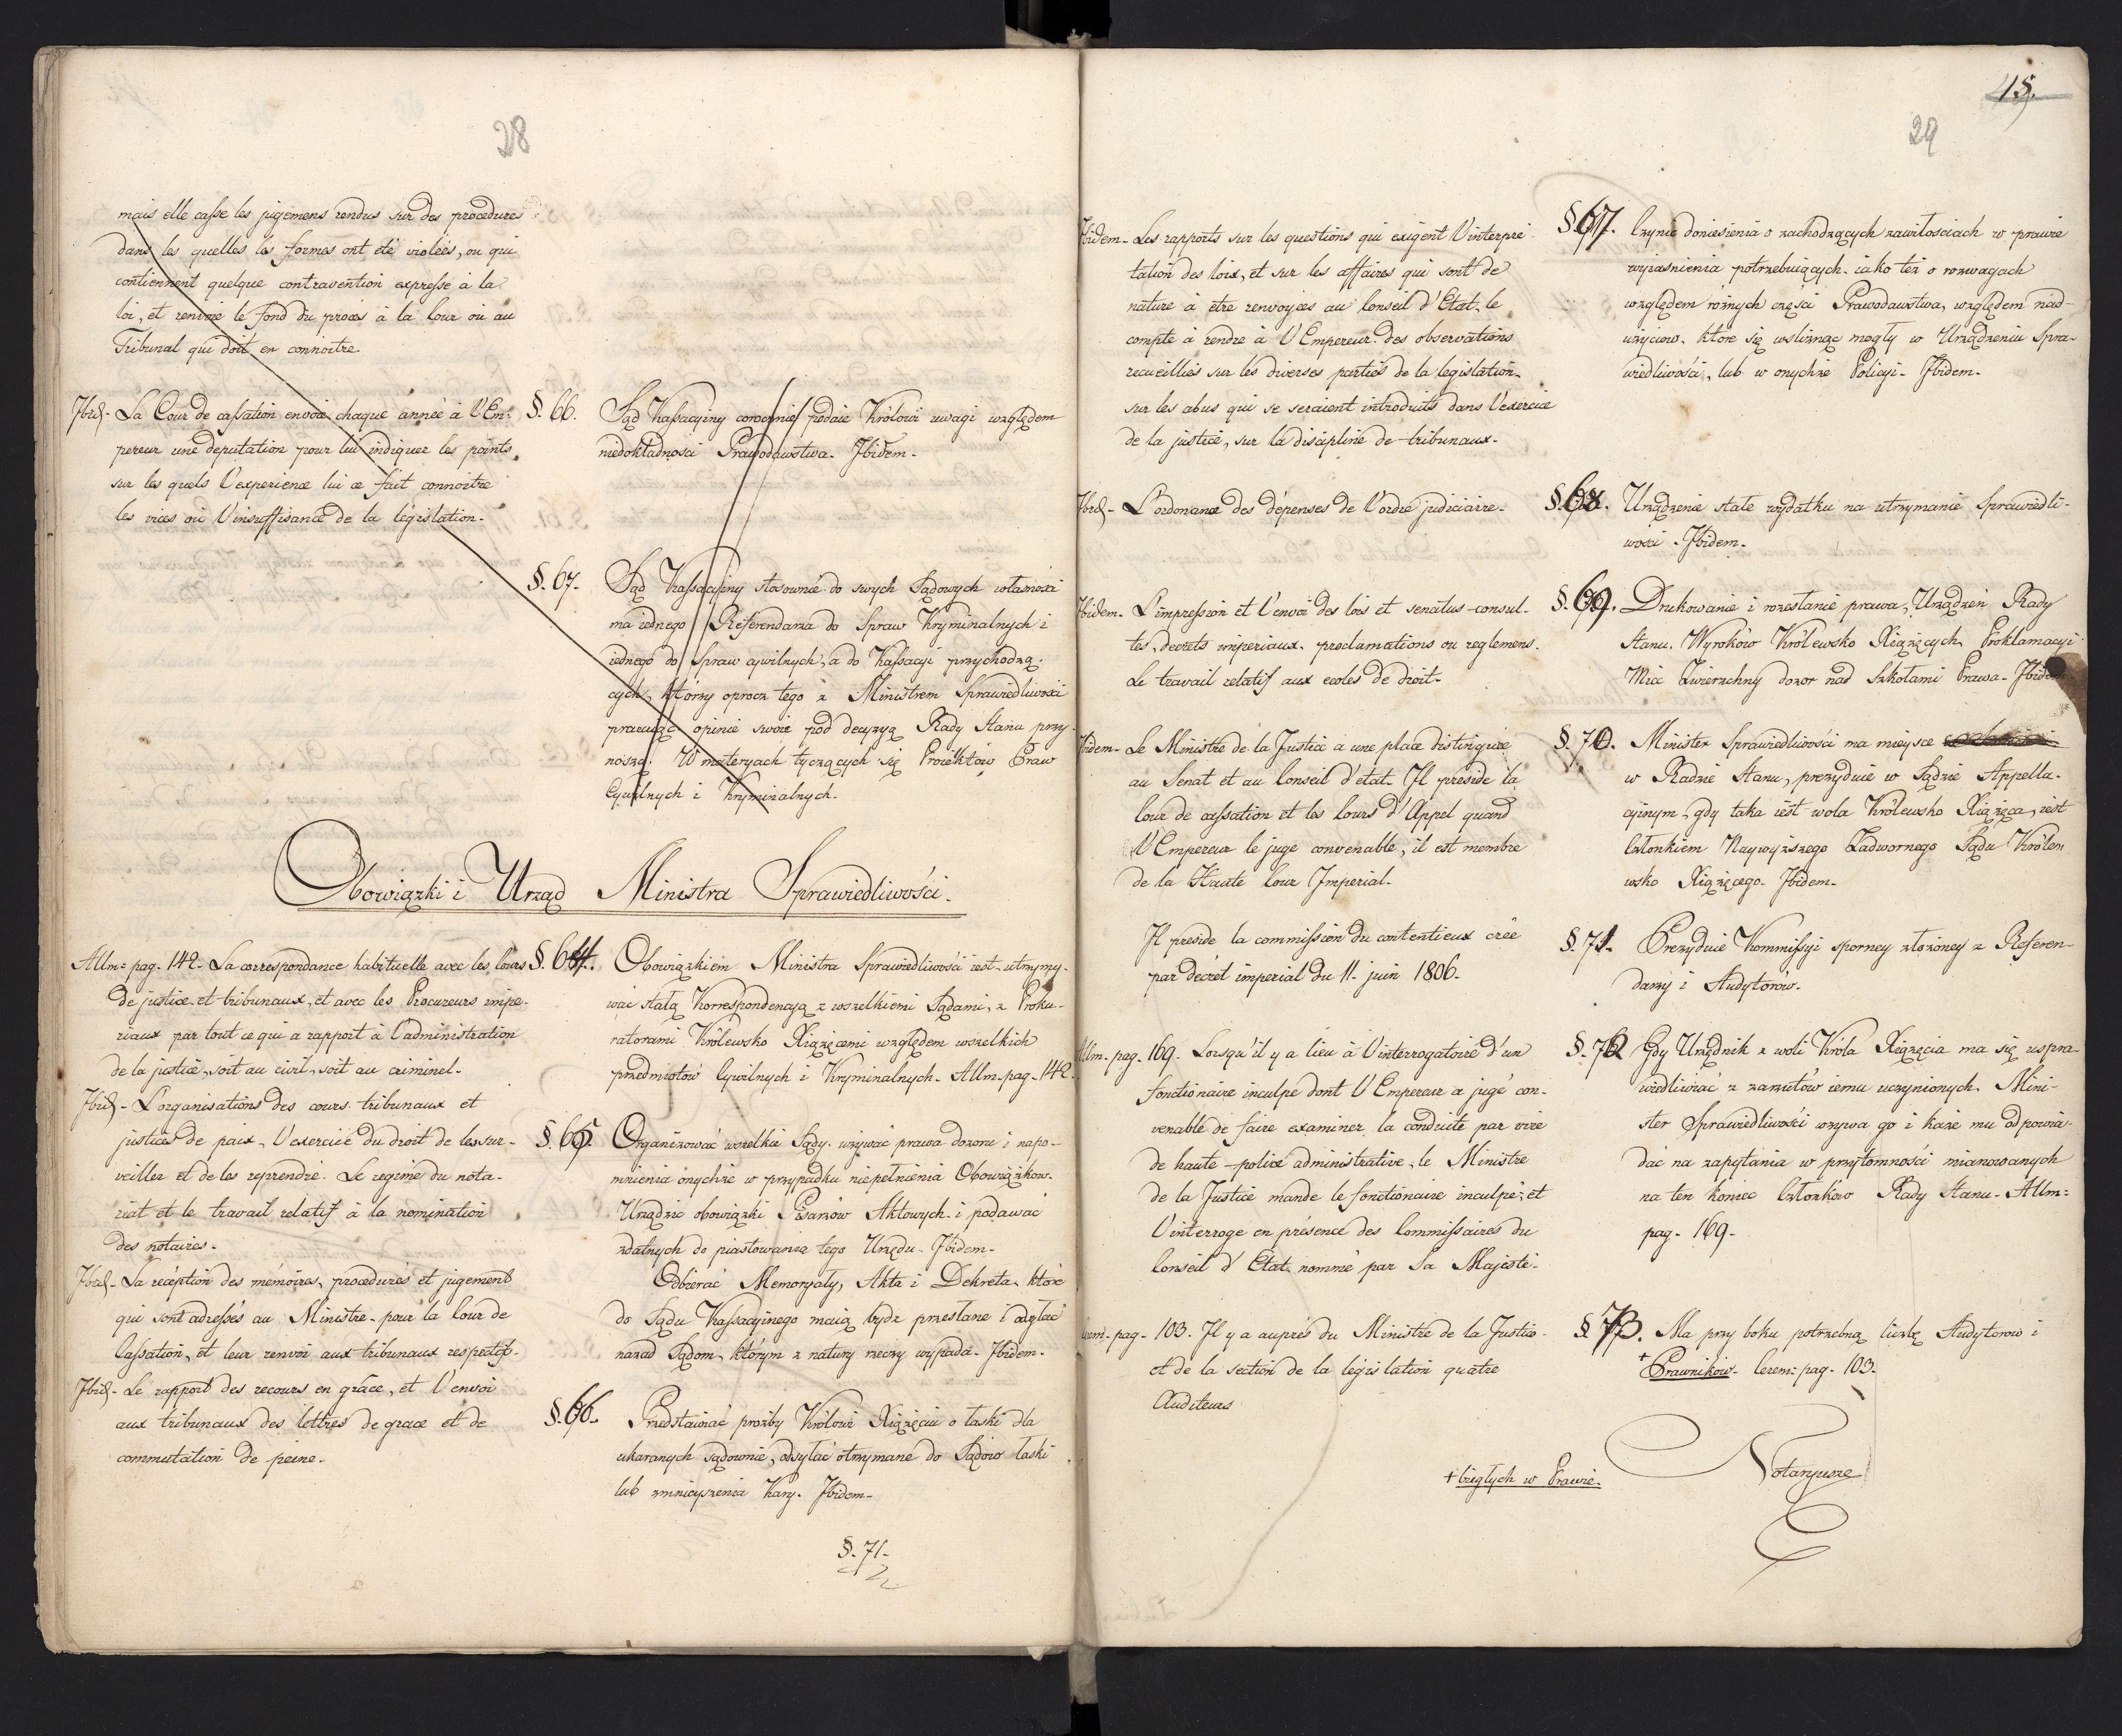 28
mais elle casse les jugemens rendus sur des procedures
dans les quelles les formes ont été violées, ou qui
contiennent quelque contravention expresse à la
loi, et renvoie le fond du procès à la Cour où au
Tribunal qui doit en connoitre.
Ibid- La Cour de cassation envoie chaque année à l'Em-
pereur une deputation pour lui indiquer les points
sur les quels l'experience lui a fait connoitre
les vices où l'insuffisance de la législation.
§. 66. Sąd Kassacyiny corocznie podaie Królowi uwagi względem
niedokładności Prawodawstwa. Ibidem.
§. 67. Sąd Kassacyiny stosownie do swych Sądowych własności
ma iednego Referendarza do Spraw Kryminalnych i
iednego do Spraw cywilnych, a do Kassacyi przychodzą-
cych, którzy oprocz tego z Ministrem Sprawiedliwości
pracuiąc opinie swoie pod decyzyą Rady Stanu przy-
noszą. W materyach tyczących się Proiektów Praw
Cywilnych i Kryminalnych.
Obowiązki i Urząd Ministra Sprawiedliwości.
Allm= pag. 142. La correspondance habituelle avec les Cours
de justice et tribunaux, et avec les Procureurs impe-
riaux par tout ce qui a rapport à l'administration
de la justice, soit au civil, soit au criminel.
Ibid- L'organisations des cours tribunaux et
justices de paix, l'exercice du droit de les sur-
veiller et de les reprendre. Le regime du nota-
riat et le travail relatif à la nomination
des notaires.
Ibid- La reception des mémoires, procedures et jugement
qui sont adressés au Ministre pour la Cour de
Cassation, et leur renvoi aux tribunaux respectifs.
Ibid- Le rapport des recours en grâce, et l'envoi
aux tribunaux des lettres de grace et de
commutation de peine.
§. 64. Obowiązkiem Ministra Sprawiedliwości iest utrzymy-
wać stałą Korrespondencyą z wszelkiemi Sądami, z Proku-
ratorami Królewsko Xiążęcemi względem wszelkich
przedmiotów Cywilnych i Kryminalnych. Allm. pag. 142.
§. 65. Organizować wszelkie Sądy, używać prawa dozoru i napo-
mnienia onychże w przypadku niepełnienia Obowiązkow.
Urządzić obowiązki Pisarzów Aktowych i podawać
zdatnych do piastowania tego Urzędu. Ibidem.
Odbierać Memoryały, Akta i Dekreta, które
do Sądu Kassacyinego maią bydz przesłane i odsyłać
nazad Sądom, którym z natury rzeczy wypada. Ibidem.
§. 66. Przedstawiać prozby Królowi Xiążęciu o łaski dla
ukaranych sądownie, odsyłać otrzymane do Sądów łaski
lub zmnieyszenia Kary. Ibidem.
§. 71.
15.
29
Ibidem- Les rapports sur les questions qui exigent l'interpré-
tation des loix, et sur les affaires qui sont de
nature à etre renvoyées au Conseil d'Etat, le
compte à rendre à l'Empereur des observations
recueillies sur les diverses parties de la legislation,
sur les abus qui se seraient introduits dans l'exercice
de la justice, sur la discipline de tribunaux.
Ibid- L'ordonance des dépenses de l'ordre judiciaire.
Ibidem- L'impression et l'envoi des lois et senatus-consul-
tes, decrets imperiaux, proclamations ou reglemens.
Le travail relatif aux ecoles de droit.
Ibidem- Le Ministre de la Justice a une place distinguée
au Senat et au Conseil d'etat. Il preside la
Cour de cassation et les Cours d'Appel quand
l'Empereur le juge convenable, il est membre
de la Haute Cour Imperial.
Il preside la commission du contentieux créé
par decret imperial du 11. juin 1806.
Allm- pag- 169. Lorsqu'il y a lieu à l'interrogatoire d'un
fonctionaire inculpe dont l'Empereur a jugé con-
venable de faire examiner la conduite par voie
de haute-police administrative, le Ministre
de la Justice mande le fonctionaire inculpé, et
l'interroge en présence des Commissaires du
Conseil d'Etat nommé par Sa Majesté.
pag- 103. Il y a auprès du Ministre de la Justice
et de la section de la législation quatre
Auditeurs
§. 67. Czynić doniesienia o zachodzących zawiłościach w prawie
wyiasnienia potrzebuiących, iako też o rozwagach
względem różnych części Prawodawstwa, względem nad-
użyciow, ktore się wsliznąć mogły w Urządzeniu Spra-
wiedliwości, lub w onychże Policyi. Ibidem.
§. 68. Urządzenie stałe wydatku na utrzymanie Sprawiedli-
wości. Ibidem.
§. 69. Drukowanie i rozesłanie prawa, Urządzeń Rady
Stanu, Wyroków Królewsko Xiążęcych, Proklamacyi
Mieć Zwierzchny dozor nad Szkołami Prawa. Ibidem.
§. 70. Minister Sprawiedliwości ma mieysce
w Radzie Stanu, prezyduie w Sądzie Appella-
cyinym, gdy taka iest wola Królewsko Xiążęca, iest
Członkiem Naywyższego Zadwornego Sądu Króle-
wsko Xiążęcego. Ibidem.
§. 71. Prezyduie Kommissyi sporney złożoney z Referen-
darzy i Audytorów.
§. 72 Gdy Urzędnik z woli Króla Xiążęcia ma się uspra-
wiedliwiać z zarzutów iemu uczynionych. Mini-
ster Sprawiedliwości wzywa go i każe mu odpowia-
dać na zapytania w przytomności mianowanych
na ten koniec Członków Rady Stanu. Allm=
pag. 169.
§. 73. Ma przy boku potrzebną liczbę Audytorow i
+ Prawnikow. Cerem: pag. 103.
+ biegłych w Prawie.
Notaryusze